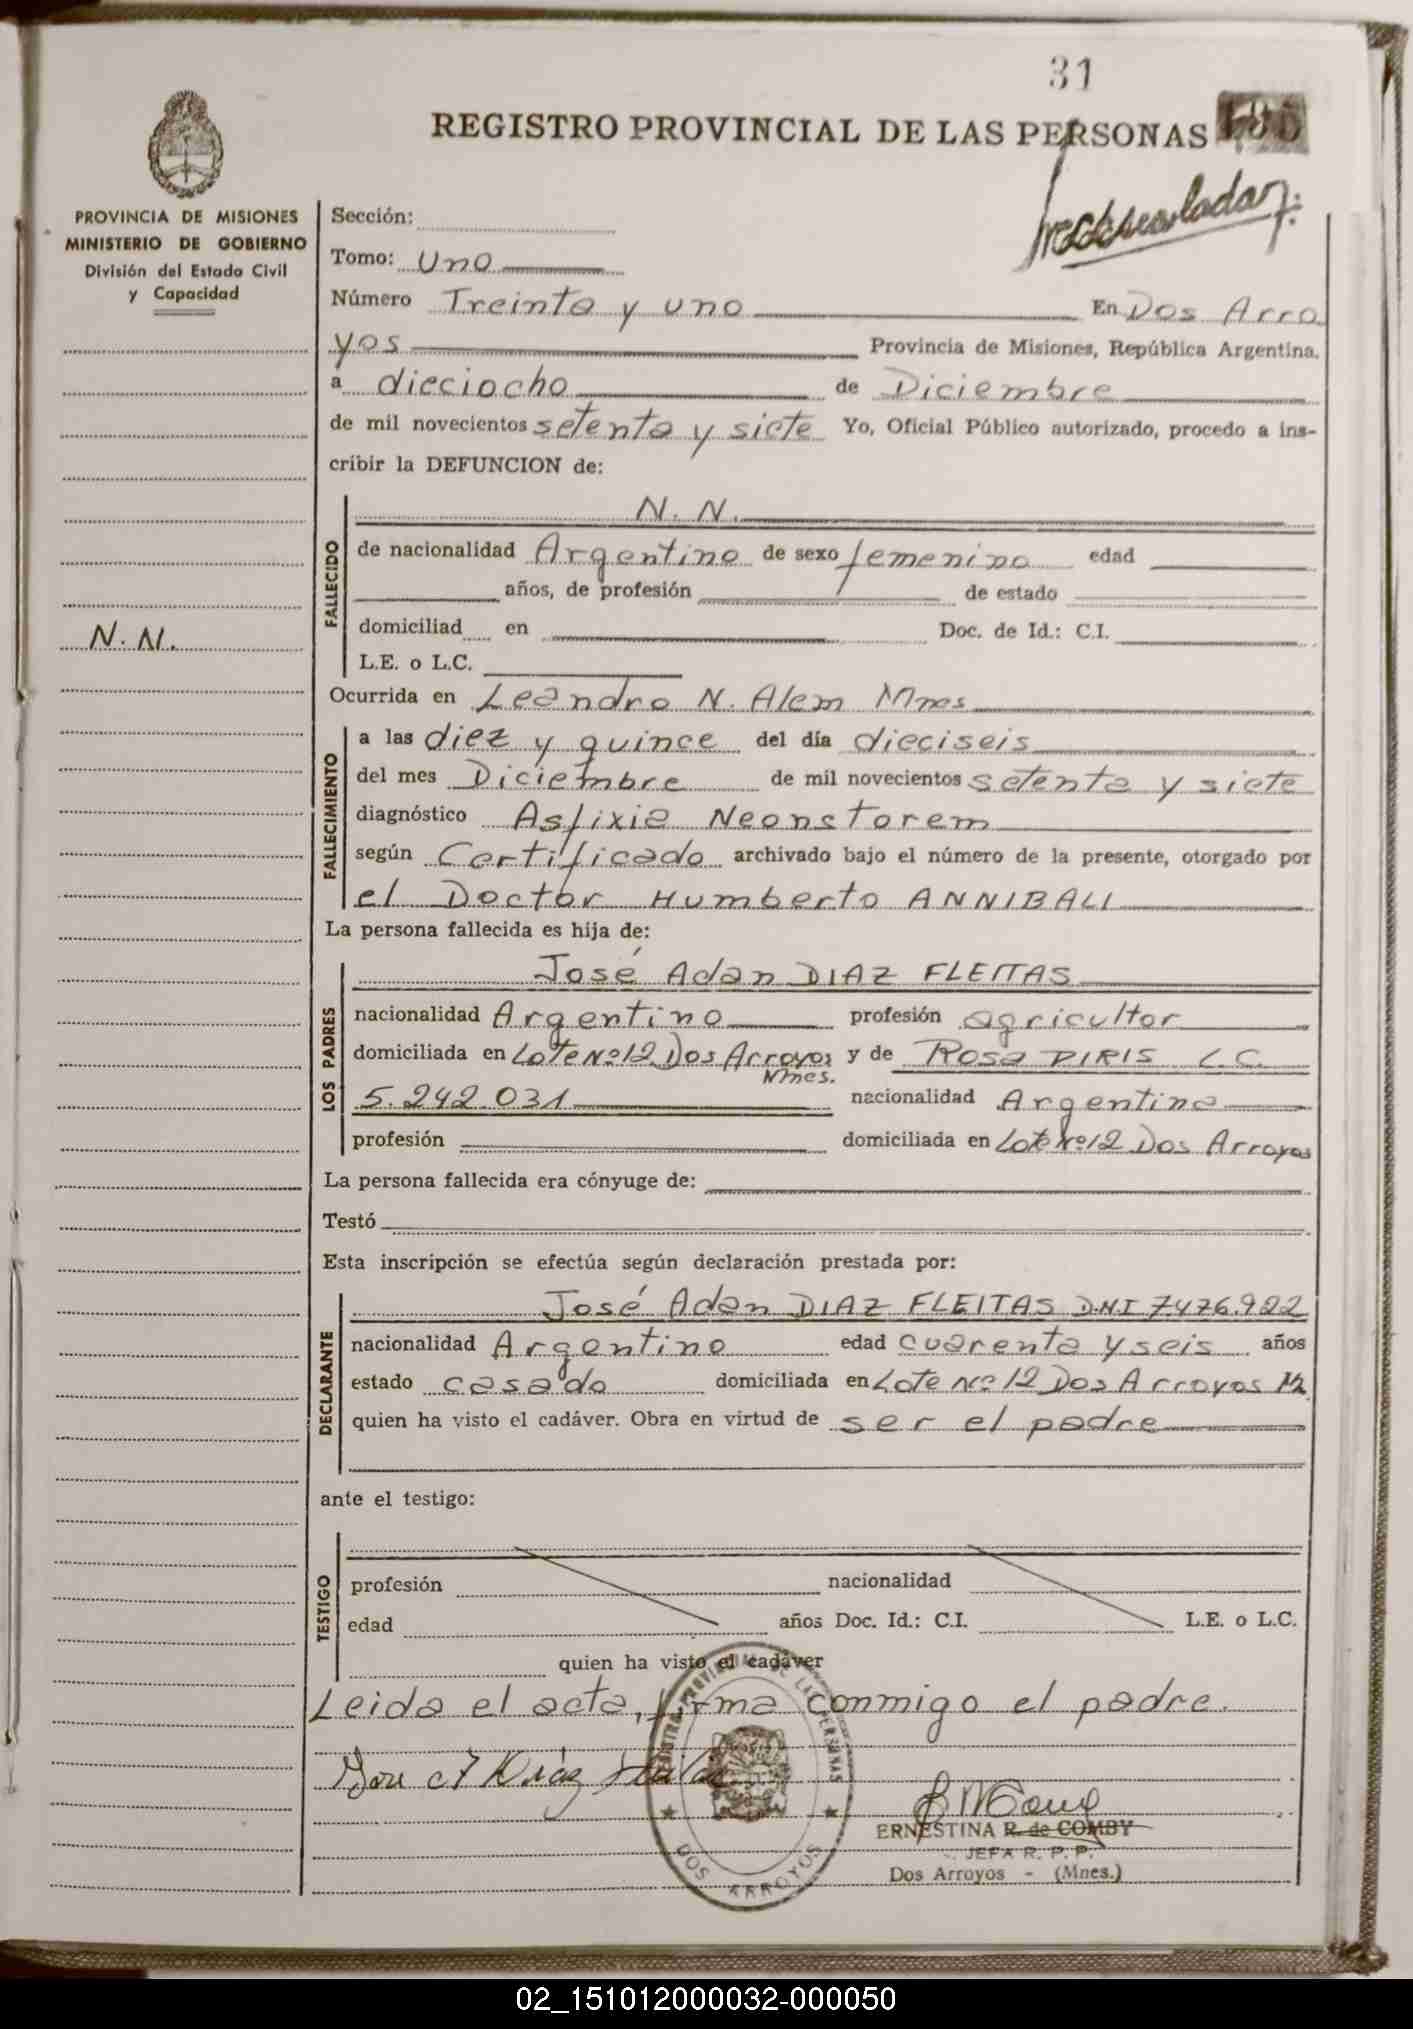 31
REGISTRO PROVINCIAL DE LAS PERSONAS
PROVINCIA DE MISIONES
MINISTERIO DE GOBIERNO
División del Estado Civil
y Capacidad
N. N.
Sección:
Tomo: Uno
Número Treinta y uno En Dos Arro
yos Provincia de Misiones, República Argentina.
a dieciocho de Diciembre
de mil novecientos setenta y siete Yo, Oficial Público autorizado, procedo a ins-
cribir la DEFUNCION de:
FALLECIDO
N. N.
de nacionalidad Argentino de sexo femenino edad
años, de profesión de estado
domiciliad en Doc. de Id.: C.I.
L.E. o L.C.
Ocurrida en Leandro N. Alem Mnes
FALLECIMIENTO
a las diez y quince del día dieciseis
del mes Diciembre de mil novecientos setenta y siete
diagnóstico Asfixia Neonstorem
según Certificado archivado bajo el número de la presente, otorgado por
el Doctor Humberto ANNIBALI
La persona fallecida es hija de:
LOS PADRES
José Adan DIAZ FLEITAS
nacionalidad Argentino profesión agricultor
domiciliada en Lote Nº 12 Dos Arroyos Mnes. y de Rosa PIRIS L.C.
5.242.031 nacionalidad Argentina
profesión domiciliada en Lote Nº 12 Dos Arroyos
La persona fallecida era cónyuge de:
Testó
Esta inscripción se efectúa según declaración prestada por:
DECLARANTE
José Adan DIAZ FLEITAS D.N.I 7.476.922
nacionalidad Argentino edad cuarenta y seis años
estado casado domiciliada en Lote Nº 12 Dos Arroyos
quien ha visto el cadáver. Obra en virtud de ser el padre
ante el testigo:
TESTIGO
profesión nacionalidad
edad años Doc. Id.: C.I. L.E. o L.C.
quien ha visto el cadáver
Leida el acta, firma conmigo el padre.
REGISTRO PROVINCIAL DE LAS PERSONAS
DOS ARROYOS
ERNESTINA R. de COMBY
JEFA R. P. P.
Dos Arroyos - (Mnes.)
02_151012000032-000050